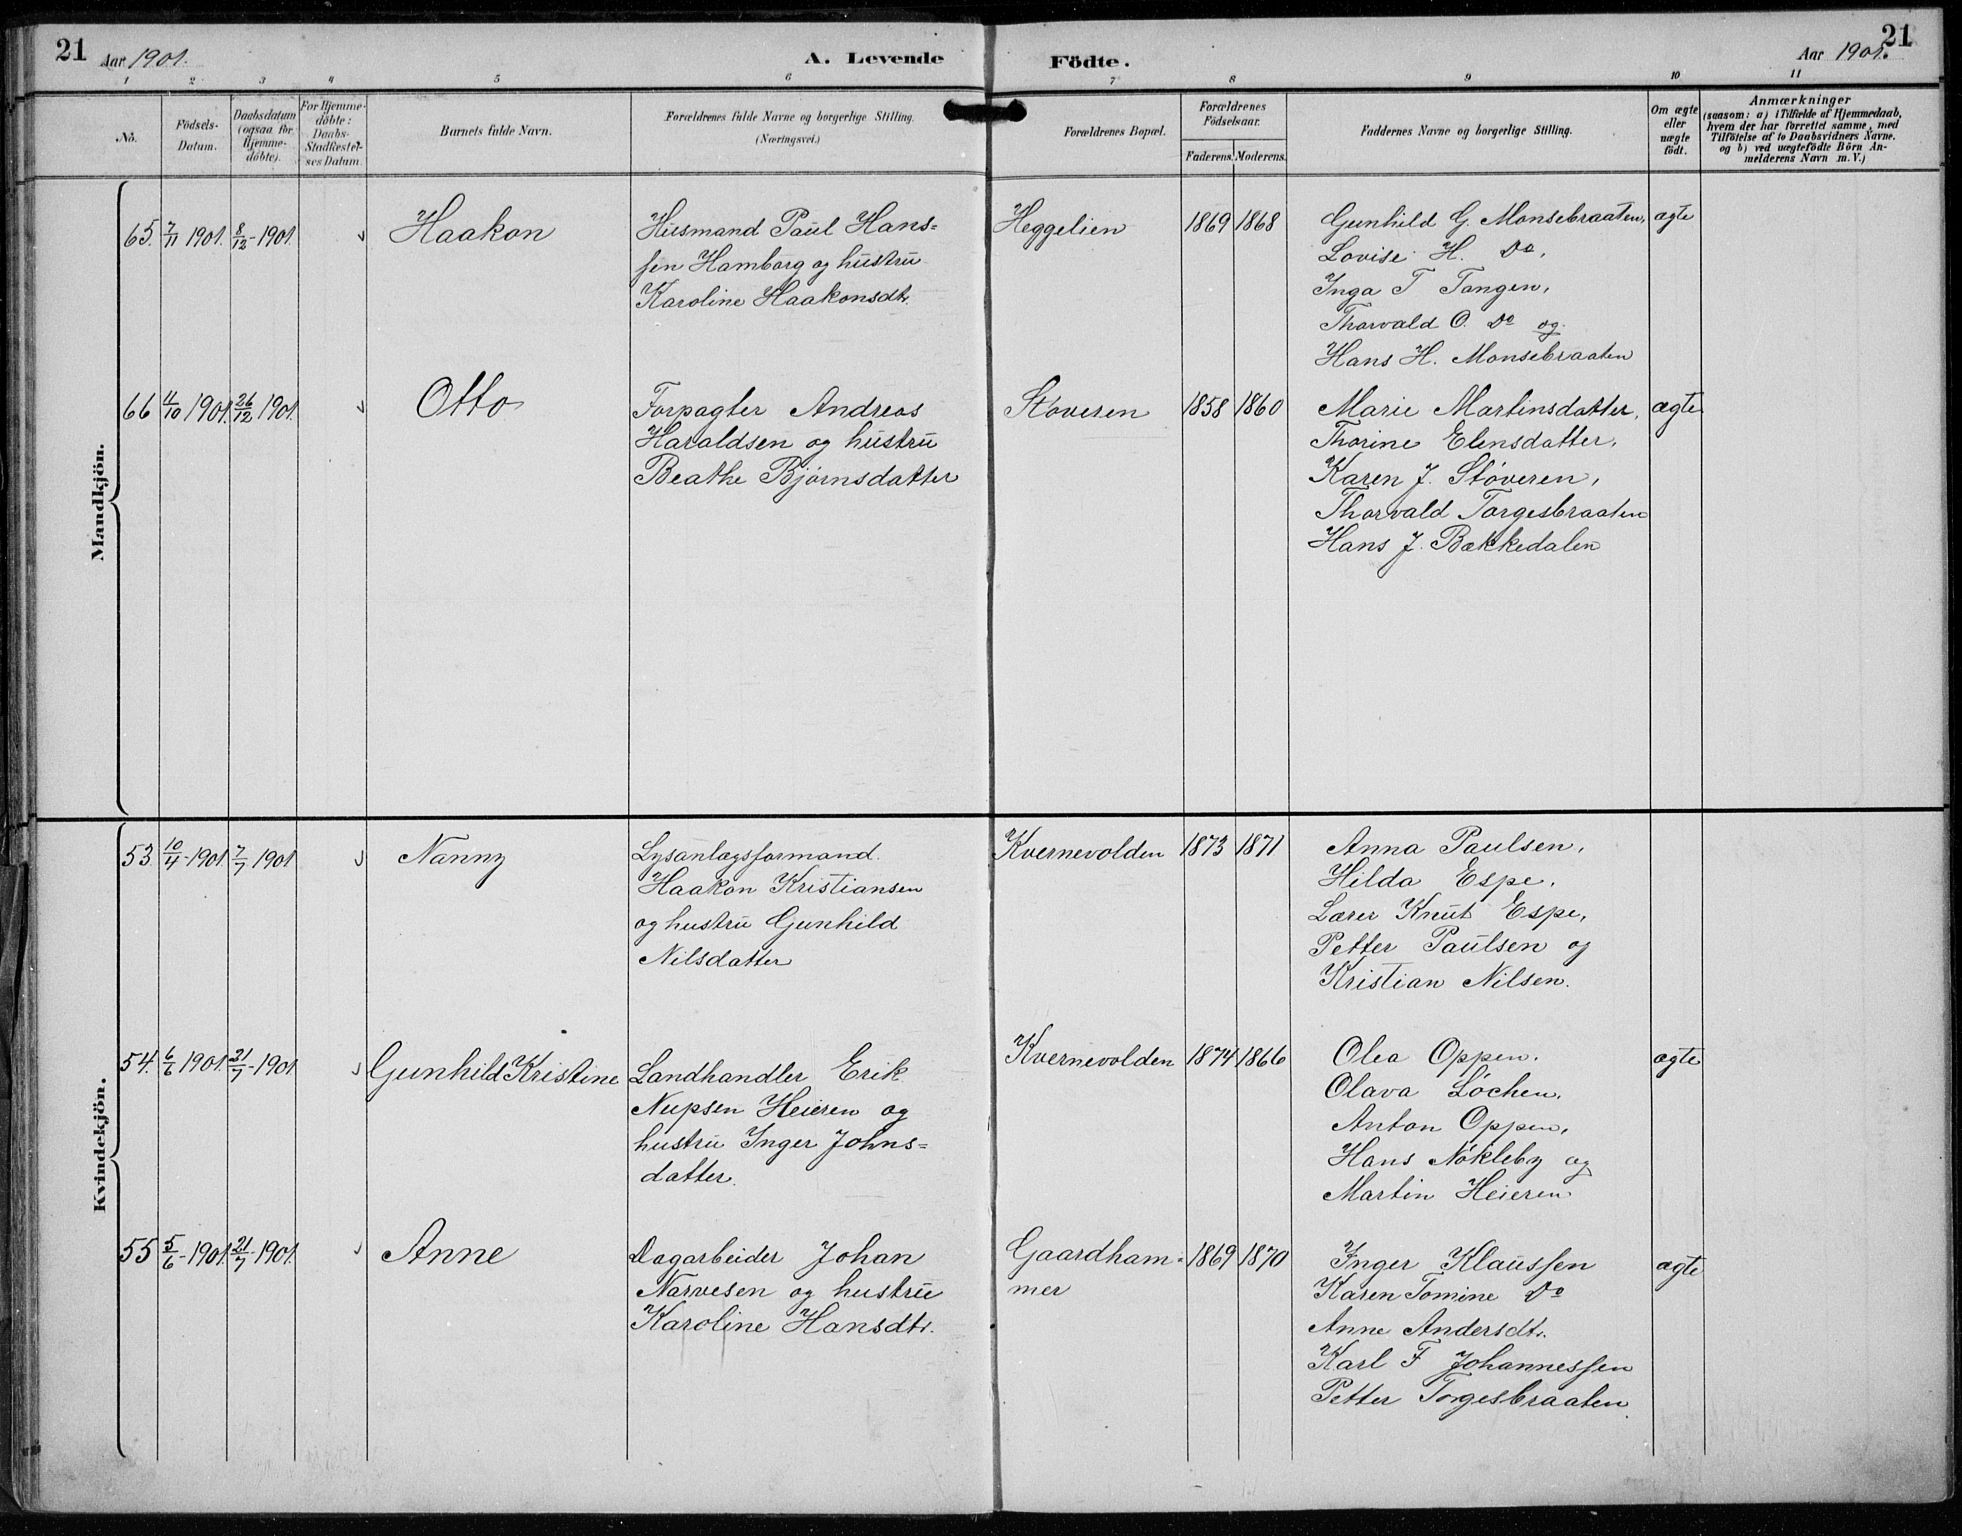 21
Aar 1901.
A. Levende Födte.
Aar 1901.
21
1 2 3 4 5 6 7 8 9 10 11
No.
Födsels-
Datum.
Daabsdatum
(ogsaa for
Hjemme-
döbte).
For Hjemme-
döbte:
Daabs-
Stadfestel-
ses Datum.
Barnets fulde Navn.
Forældrenes fulde Navne og borgerlige Stilling.
(Næringsvei.)
Forældrenes Bopæl.
Forældrenes
Födselsaar.
Faderens. Moderens.
Faddernes Navne og borgerlige Stilling.
Om ægte
eller
uægte
födt.
Anmærkninger
(saasom: a) i Tilfælde af Hjemmedaab,
hvem der har forrettet samme, med
Tilföielse af to Daabsvidners Navne.
og b) ved uægtefödte Börn An-
melderens Navn m. V.)
Mandkjön.
65. 7/11 1901. 8/12-1901. Haakon
Husmand Paul Hans=
sen Hamborg og hustru
Karoline Haakonsdtr.
Heggelien 1869 1868
Gunhild G. Monsebraaten,
Lovise H. Do,
Inga T Tangen,
Thorvald O. Do og
Hans H. Monsebraaten
ægte
66 4/10 1901. 26/12 1901. Otto
Forpagter Andreas
Haraldsen og hustru
Beathe Bjørnsdatter
Støveren 1858 1860
Marie Martinsdatter,
Thorine Elensdatter,
Karen J. Støveren,
Thorvald Torgesbraaten
Hans J. Bækkedalen
ægte
Kvindekjön.
53 10/4-1901. 7/7 1901 Nanny
Lysanlægsformand.
Haakon Kristiansen
og hustru Gunhild
Nilsdatter
Kvernevolden 1873 1871
Anna Paulsen,
Hilda Espe,
Lærer Knut Espe,
Petter Paulsen og
Kristian Nilsen.
54. 6/6 1901. 21/7-1901. Gunhild Kristine
Landhandler Erik
Nupsen Heieren og
hustru Inger Johns=
datter.
Kvernevolden 1874 1866
Olea Oppen.
Olava Løchen,
Anton Oppen,
Hans Nøkleby og
Martin Heieren
ægte
55 5/6-1901. 21/7-1901. Anne
Dagarbeider Johan
Narvesen og hustru
Karoline Hansdtr.
Gaardham=
mer
1869 1870
Inger Klaussen
Karen Tomine Do
Anne Andersdtr.
Karl F Johannessen
Petter Torgesbraaten
ægte